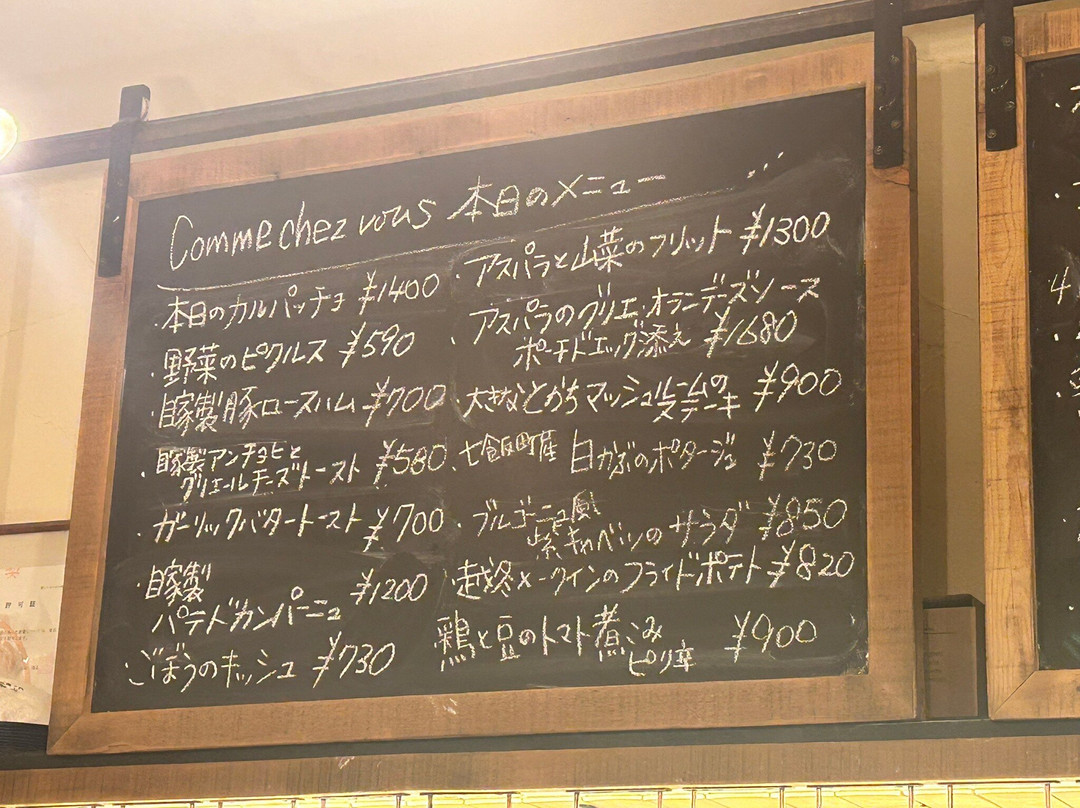 Comme chez vous 本日のメニュー
・本日のカルパッチョ ¥1400
・野菜のピクルス ¥590
・自家製豚ロースハム ¥700
・自家製アンチョビと
グリエールチーズトースト ¥580
・ガーリックバタートースト ¥700
・自家製
パテドカンパーニュ ¥1200
・ごぼうのキッシュ ¥730
・アスパラと山菜のフリット ¥1300
・アスパラのグリエ・オランデーズソース
ポーチドエッグ添え ¥1680
・大きなとかちマッシュルームの
ステーキ ¥900
・七飯町産 白かぶのポタージュ ¥730
・ブルゴーニュ風
紫キャベツのサラダ ¥850
・越冬メークインのフライドポテト ¥820
鶏と豆のトマト煮込み
ピリ辛 ¥900
許可証